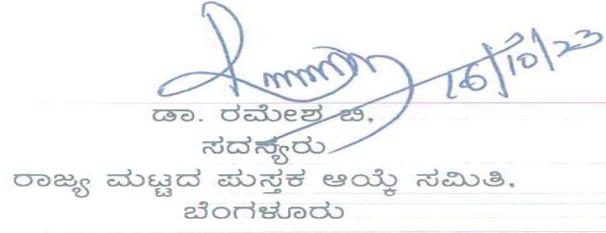 16/10/23
ಡಾ. ರಮೇಶ ಬಿ,
ಸದಸ್ಯರು
ರಾಜ್ಯ ಮಟ್ಟದ ಪುಸ್ತಕ ಆಯ್ಕೆ ಸಮಿತಿ,
ಬೆಂಗಳೂರು